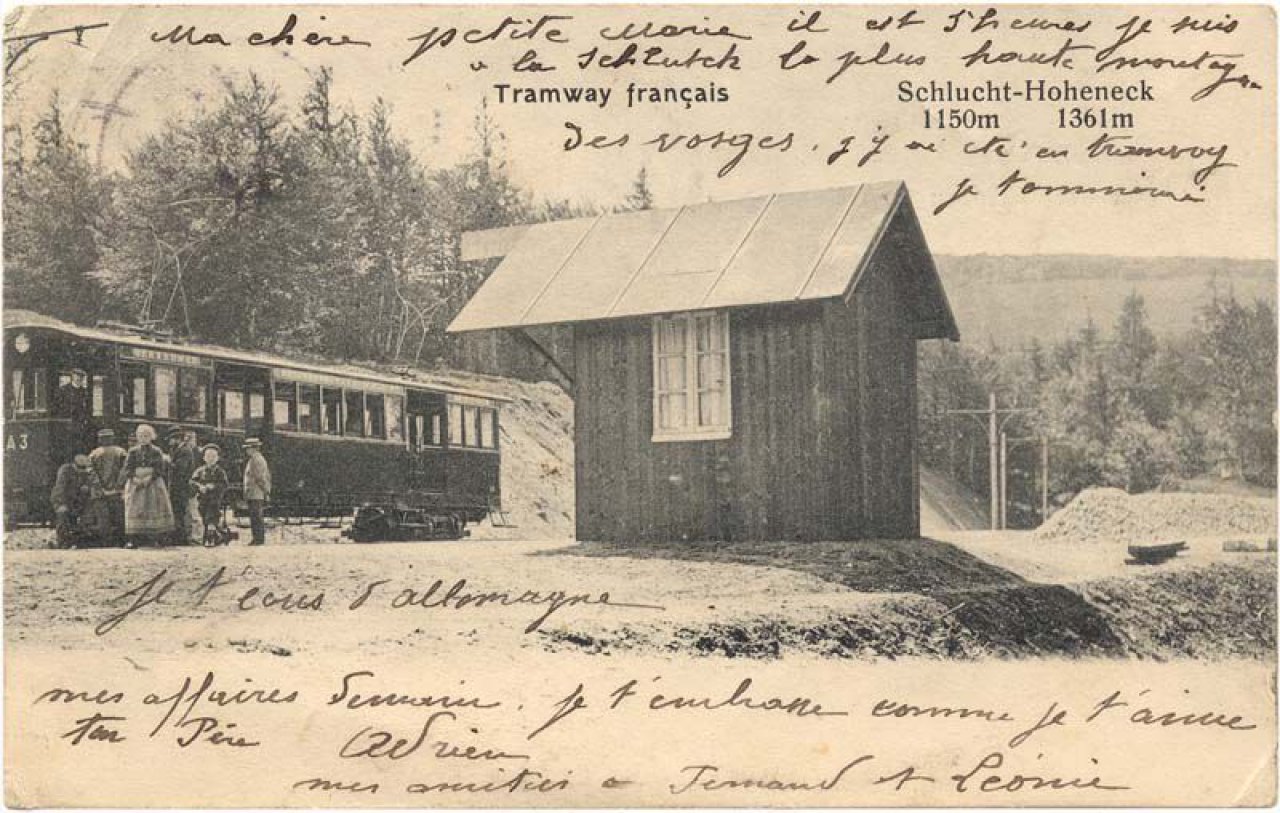 Ma chère petite Marie il est 5 heures je suis
a la Schlutck la plus haute montagne
Tramway français
Schlucht-Hoheneck
1150m 1361m
des vosges. j'y ai été en tramvoy
je t'emmènerai
A3
je t'écris d'allemagne
mes affaires demain. je t'embrasse comme je t'aime
ton Père Adrien
mes amitiés a Fernand et Léonie